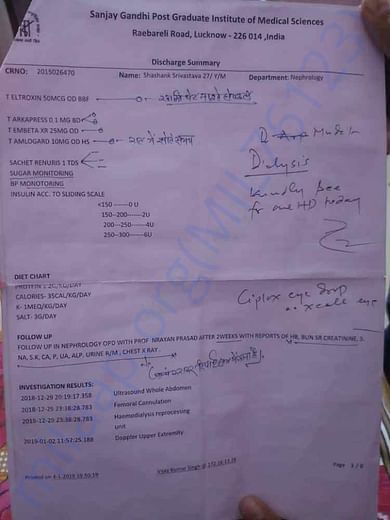 Sanjay Gandhi Post Graduate Institute of Medical Sciences
Raebareli Road, Lucknow - 226 014 ,India
Discharge Summary
CRNO: 2015026470 Name: Shashank Srivastava 27/ Y/M Department: Nephrology
T ELTROXIN 50MCG OD BBF
T ARKAPRESS 0.1 MG BD
T EMBETA XR 25MG OD
T AMLOGARD 10MG OD HS रात में सोते समय
SACHET RENURIS 1 TDS
SUGAR MONITORING
BP MONOTORING
INSULIN ACC. TO SLIDING SCALE
<150 ------0 U
150--200-------2U
200---250------4U
250--300------6U
Dialysis
Kindly
for one HD today
DIET CHART
CALORIES- 35CAL/KG/DAY
K- 1MEQ/KG/DAY
SALT- 3G/DAY
Ciplox eye drop
eye
FOLLOW UP
FOLLOW UP IN NEPHROLOGY OPD WITH PROF NRAYAN PRASAD AFTER 2WEEKS WITH REPORTS OF HB, BUN SR.CREATININE, S.
NA, S.K, CA, P, UA, ALP, URINE R/M , CHEST X RAY.
INVESTIGATION RESULTS:
2018-12-29 20:19:17.358 Ultrasound Whole Abdomen
2018-12-25 23:38:28.783 Femoral Cannulation
2018-12-25 23:38:28.783 Haemodialysis reprocessing
unit
2019-01-02 11:52:25.188 Doppler Upper Extremity
Printed on 4-1-2019 19:50:59
Vijay Kumar Singh @ 172.16.11.28
Page